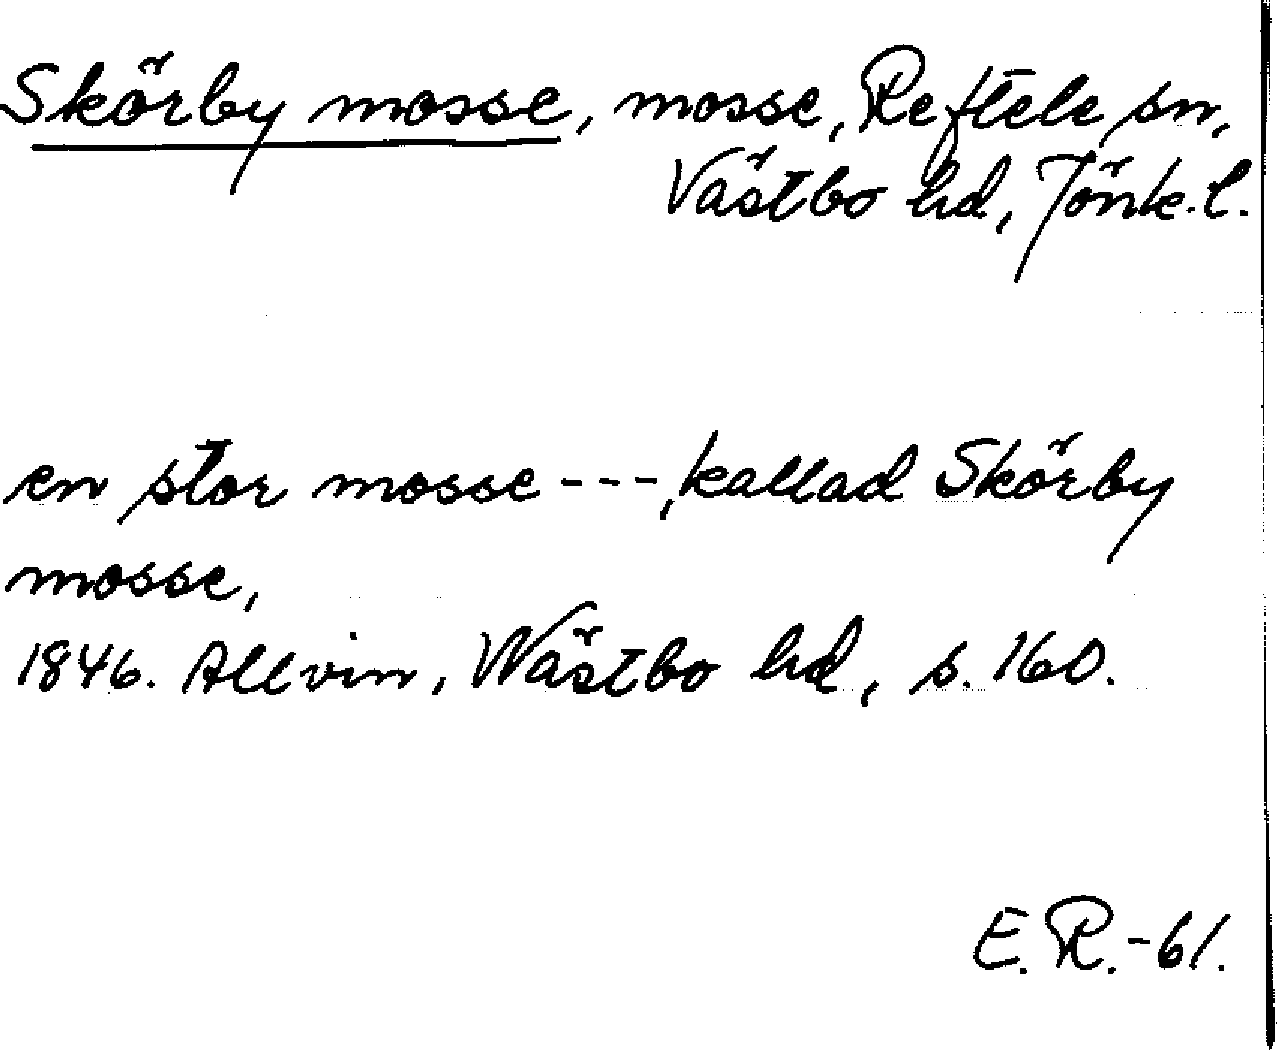 Skörby mosse, mosse, Reftele sn,
Västbo hd, Jönk. l.
en stor mosse ---, kallad Skörby
mosse,
1846. Allvin, Wästbo hd, s. 160.
E. R. -61.